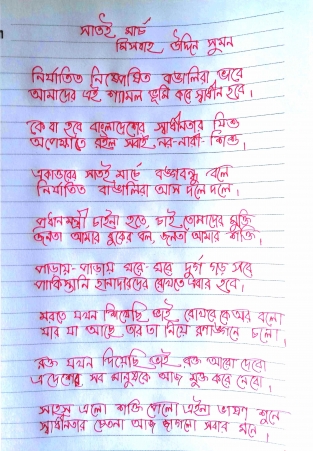 সাতই মার্চ
মিসবাহ উদ্দিন সুমন
নির্যাতিত নিষ্পেষিত বাঙালিরা ভাবে
আমাদের এই শ্যামল ভূমি কবে স্বাধীন হবে।
কে বা হবে বাংলাদেশের স্বাধীনতার যিশু
অপেক্ষাতে রইল সবাই নর-নারী-শিশু,
একাত্তরের সাতই মার্চে বঙ্গবন্ধু বলে
নির্যাতিত বাঙালিরা আস দলে দলে।
প্রধানমন্ত্রী চাইনা হতে, চাই তোমাদের মুক্তি
জনতা আমার বুকের বল, জনতা আমার শক্তি,
পাড়ায়-পাড়ায় ঘরে-ঘরে দুর্গ গড় সবে
পাকিস্তানি হানাদারদের রোখতে এবার হবে।
মরতে যখন শিখেছি ভাই রোখবে কে আর বলো
যার যা আছে তার তা নিয়ে রণাঙ্গনে চলো,
রক্ত যখন দিয়েছি ভাই রক্ত আরো দেবো
এ দেশের সব মানুষকে আজ মুক্ত করে নেবো।
সাহস এলো শক্তি পেলো এইনা ভাষণ শুনে
স্বাধীনতার চেতনা আজ জাগলো সবার মনে।